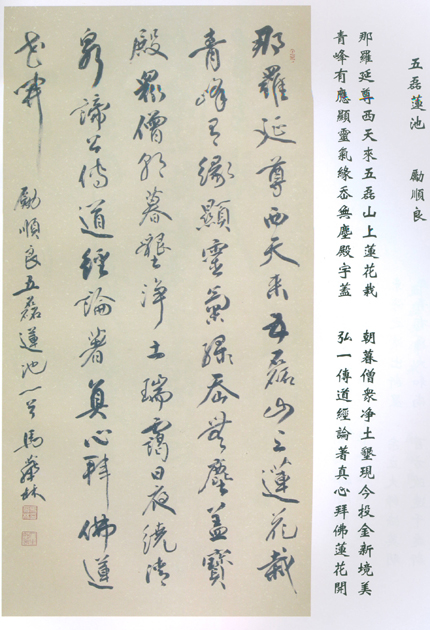 五磊蓮池 勵順良
那羅延尊西天來五磊山上蓮花栽
青峰有應顯靈氣緣岙無塵殿宇蓋
朝暮僧衆净土墾現今投金新境美
弘一傳道經論著真心拜佛蓮花開
那羅延尊西天来五磊山上蓮花栽
青峰有緣顯靈氣緑岙無塵蓋寶
殿眾僧朝暮墾淨土瑞靄日夜繞清
泉諦公傳道經論著真心拜佛蓮
花開 勵順良五磊蓮池一首馬林